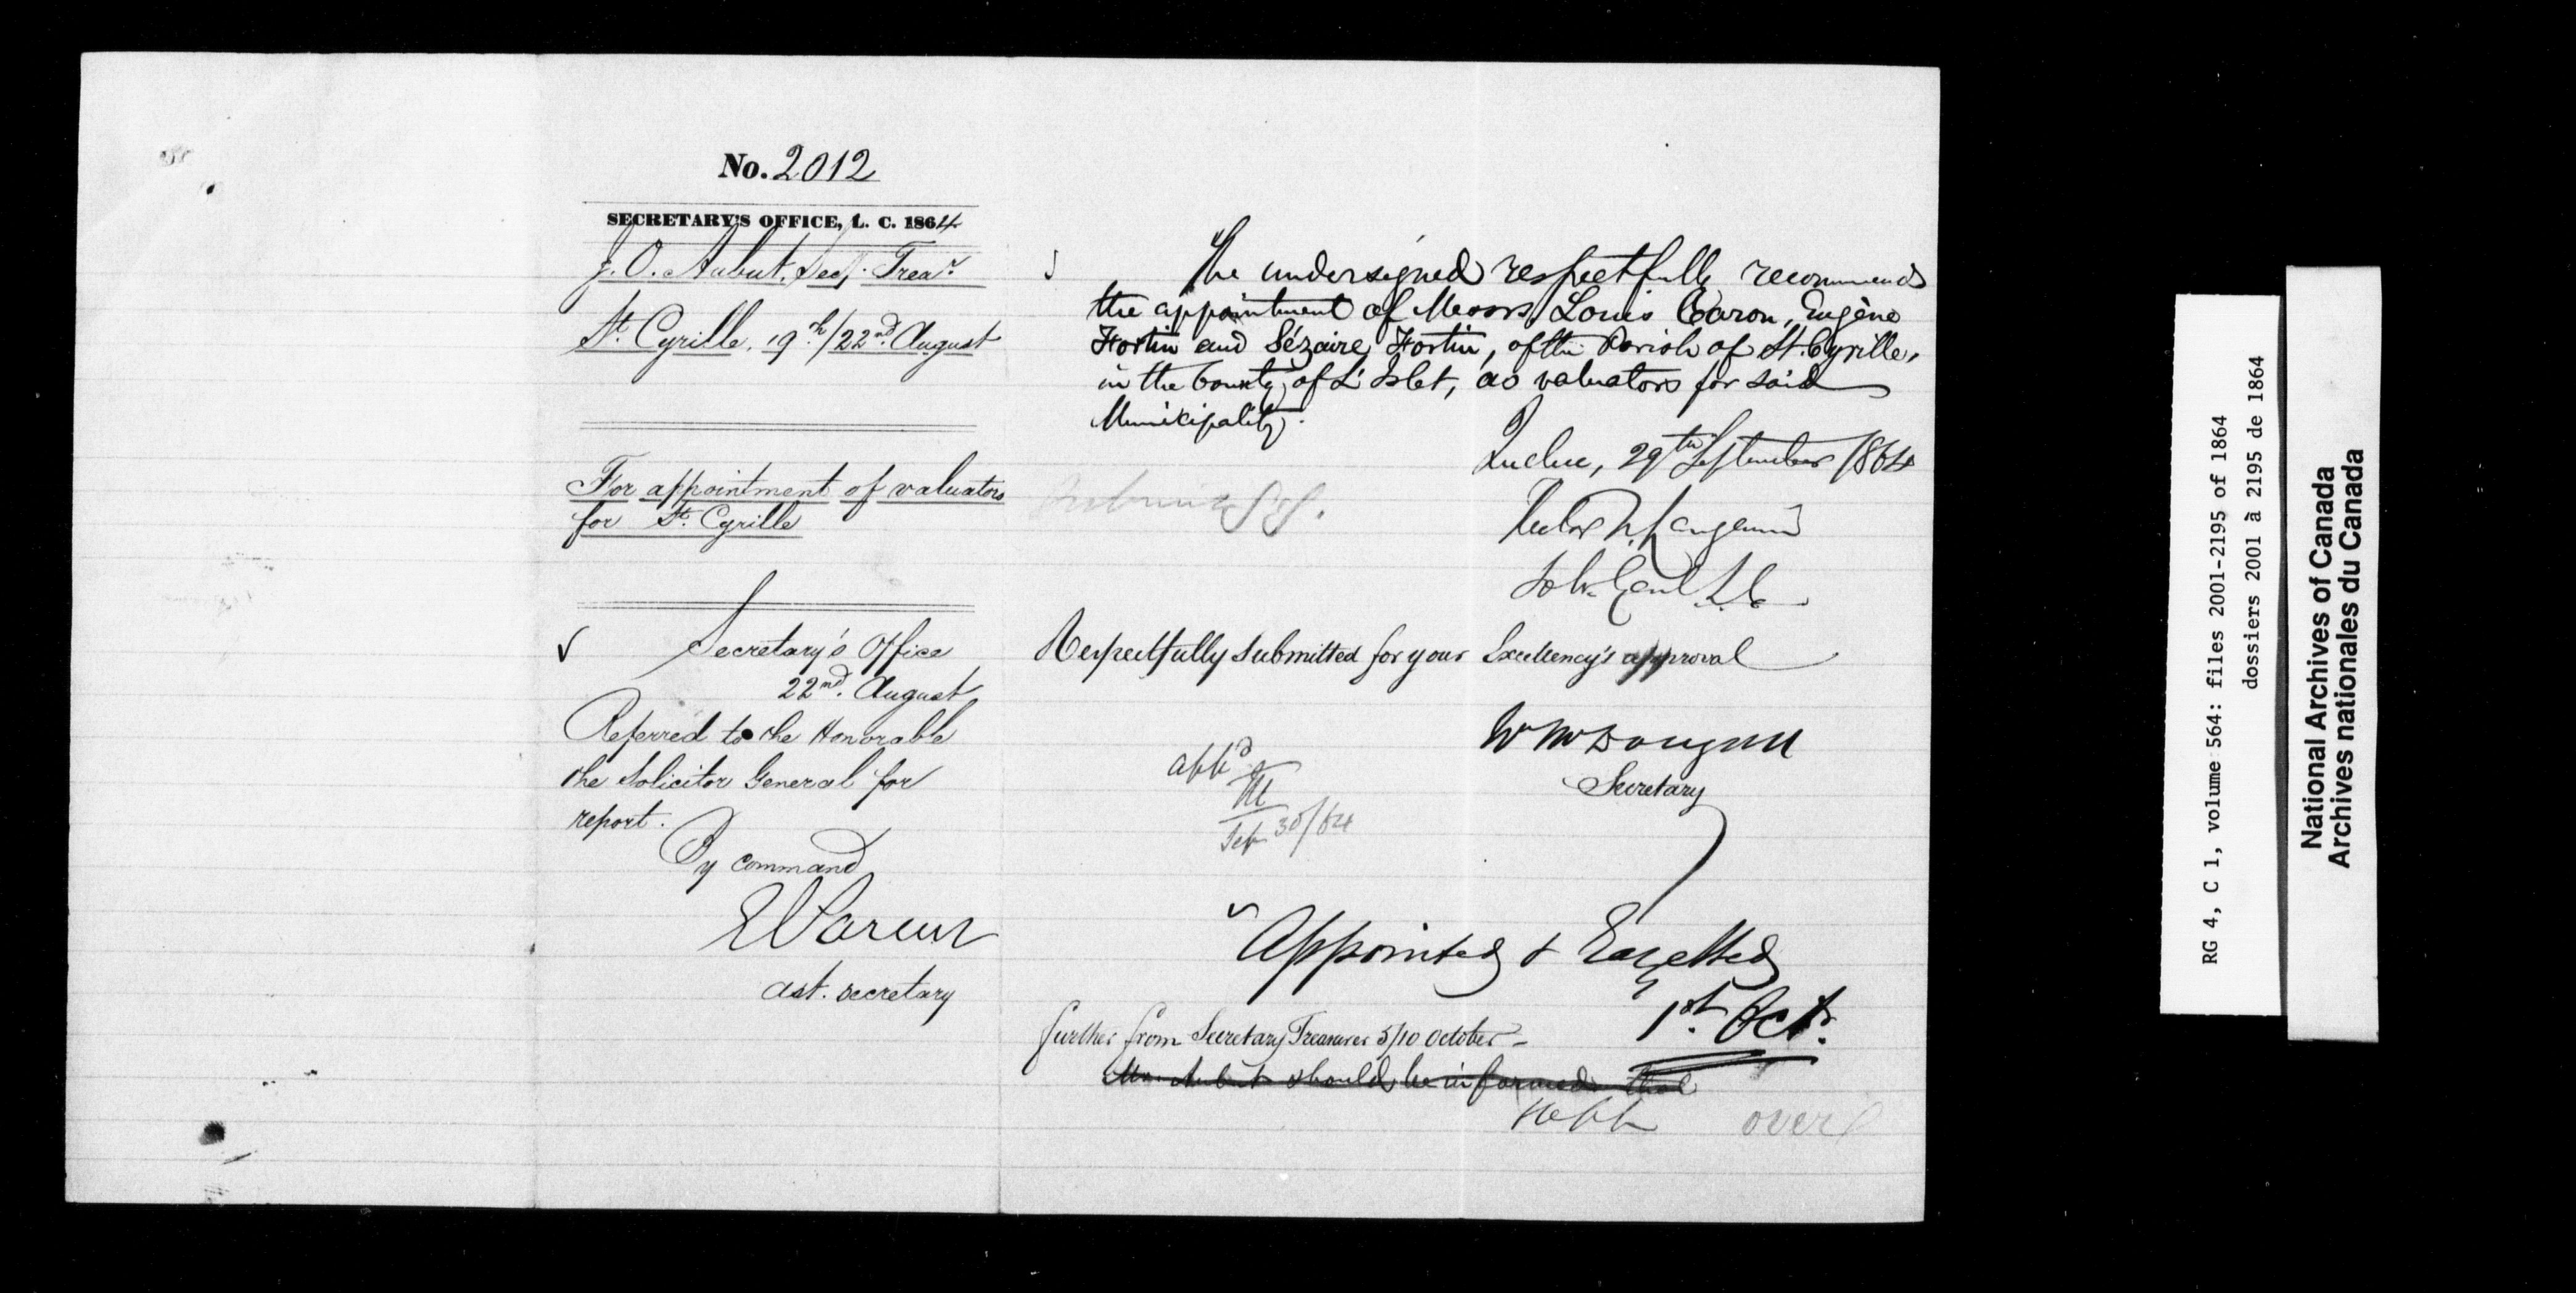 No. 2012
SECRETARY'S OFFICE, L. C. 1864
J. O. Aubut, Secy. Treasr.
St. Cyrille, 19th/22nd August
For appointment of valuators
for St. Cyrille
Secretary's Office
22nd. August
Referred to the Honorable
the Solicitor General for
report.
By command
E Parent
Ast. Secretary
The undersigned respectfully recommends
the appointment of Messrs Louis Caron, Eugène
Fortin and Sézaire Fortin, of the Parish of St. Cyrille,
in the County of L'Islet, as valuators for said
Municipality.
Quebec, 29th September 1864
Hector L. Langevin
Solr. Genl. L.C.
Respectfully submitted for your Excellency's approval
Wm McDougall
Secretary
appd
M
Sep 30/64
Appointed & Gazetted
1st. Oct.
further from Secretary Treasurer 5/10 October -
Mr. Aubut should be informed that
over
RG 4, C 1, volume 564: files 2001-2195 of 1864
dossiers 2001 à 2195 de 1864
National Archives of Canada
Archives nationales du Canada